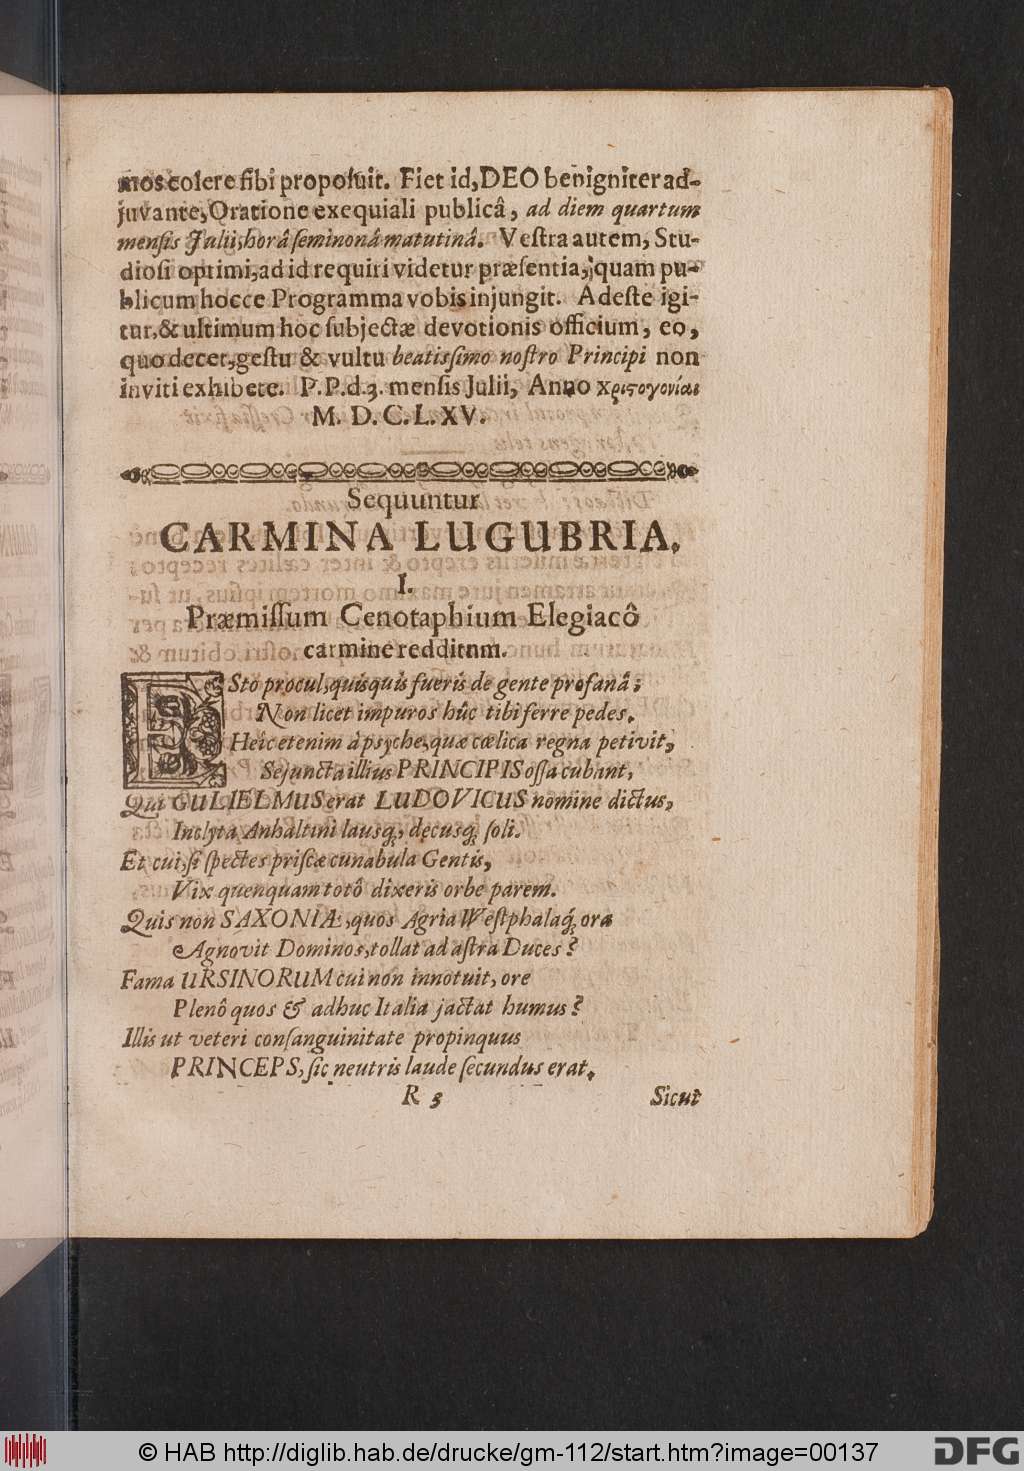 mos colere sibi proposuit. Fiet id, DEO benigniter ad-
juvante, Oratione exequiali publicâ, ad diem quartum
mensis Julii, horâ seminonâ matutinâ. Vestra autem, Stu-
diosi optimi, ad id requiri videtur præsentia, quam pu-
blicum hocce Programma vobis injungit. Adeste igi-
tur, & ultimum hoc subjectæ devotionis officium, eo,
quo decet, gestu & vultu beatissimo nostro Principi non
inviti exhibete. P. P. d. 3. mensis Julii, Anno χριςογονίαι
M. D. C. L. XV.
Sequuntur
CARMINA LUGUBRIA.
I.
Præmissum Cenotaphium Elegiacô
carmine redditum.
ESto procul, quisquis fueris de gente profanâ;
Non licet impuros hûc tibi ferre pedes.
Heic etenim à psyche, quæ cœlica regna petivit,
Sejuncta illius PRINCIPIS ossa cubant,
Qui GULIELMUS erat LUDOVICUS nomine dictus,
Inclyta Anhaltini lausq́, decusq́ soli.
Et cui, si spectes priscæ cunabula Gentis,
Vix quenquam totô dixeris orbe parem.
Quis non SAXONIÆ, quos Agria Westphalaq́ ora
Agnovit Dominos, tollat ad astra Duces?
Fama URSINORUM cui non innotuit, ore
Plenô quos & adhuc Italia jactat humus?
Illis ut veteri consanguinitate propinquus
PRINCEPS, sic neutris laude secundus erat.
R 3 Sicut
© HAB http://diglib.hab.de/drucke/gm-112/start.htm?image=00137
DFG